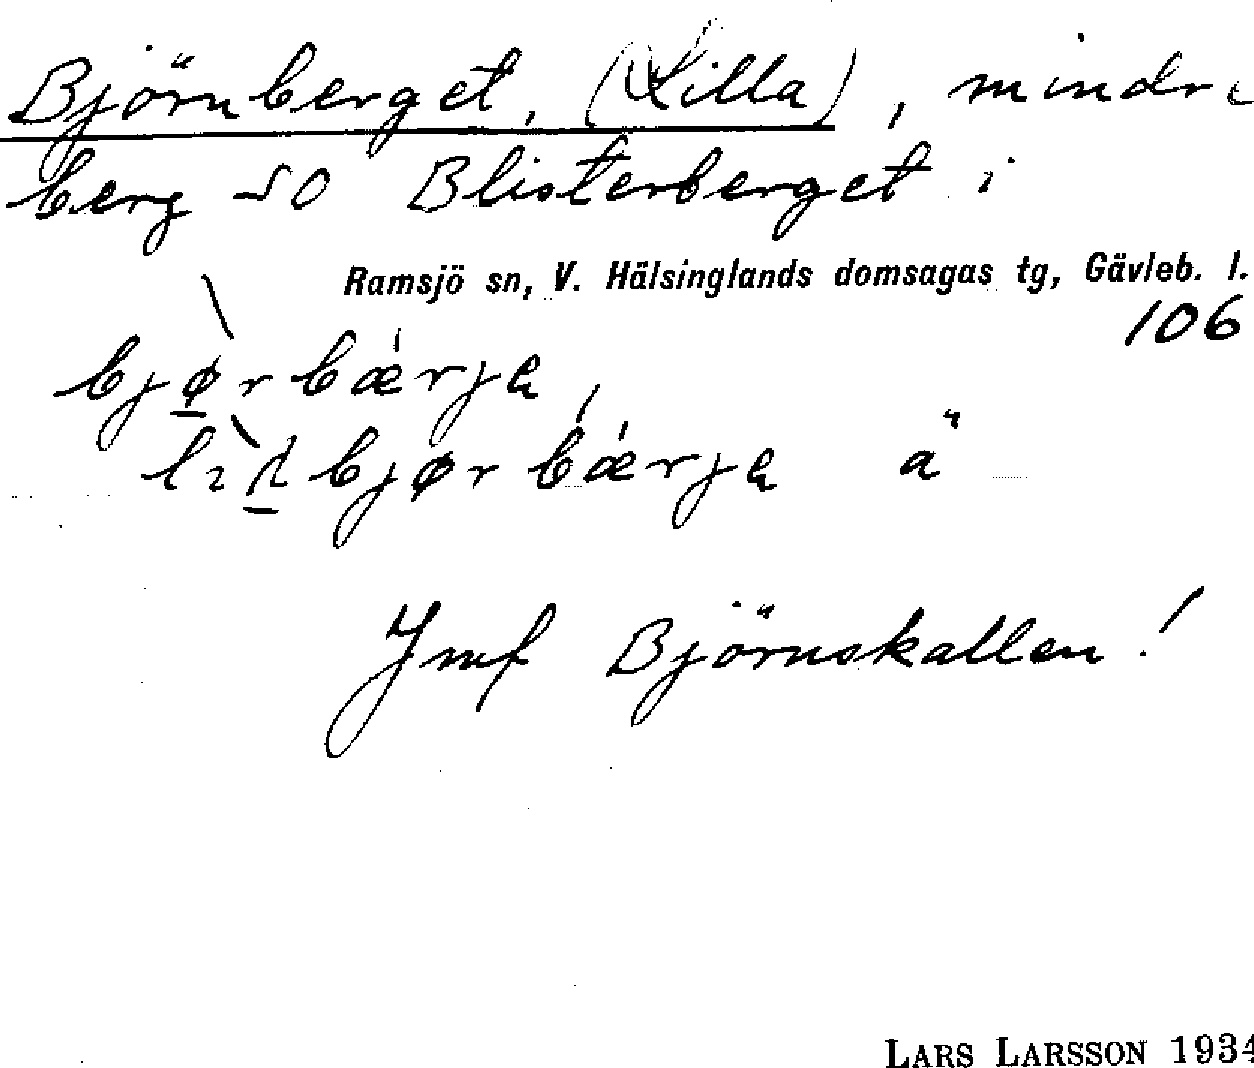 Björnberget, (Lilla), mindre
berg SO Blisterberget i
Ramsjö sn, V. Hälsinglands domsagas tg, Gävleb. l.
106
bjørbærja,
bjørbærja ä
Jmf Björnskallen!
LARS LARSSON 1934